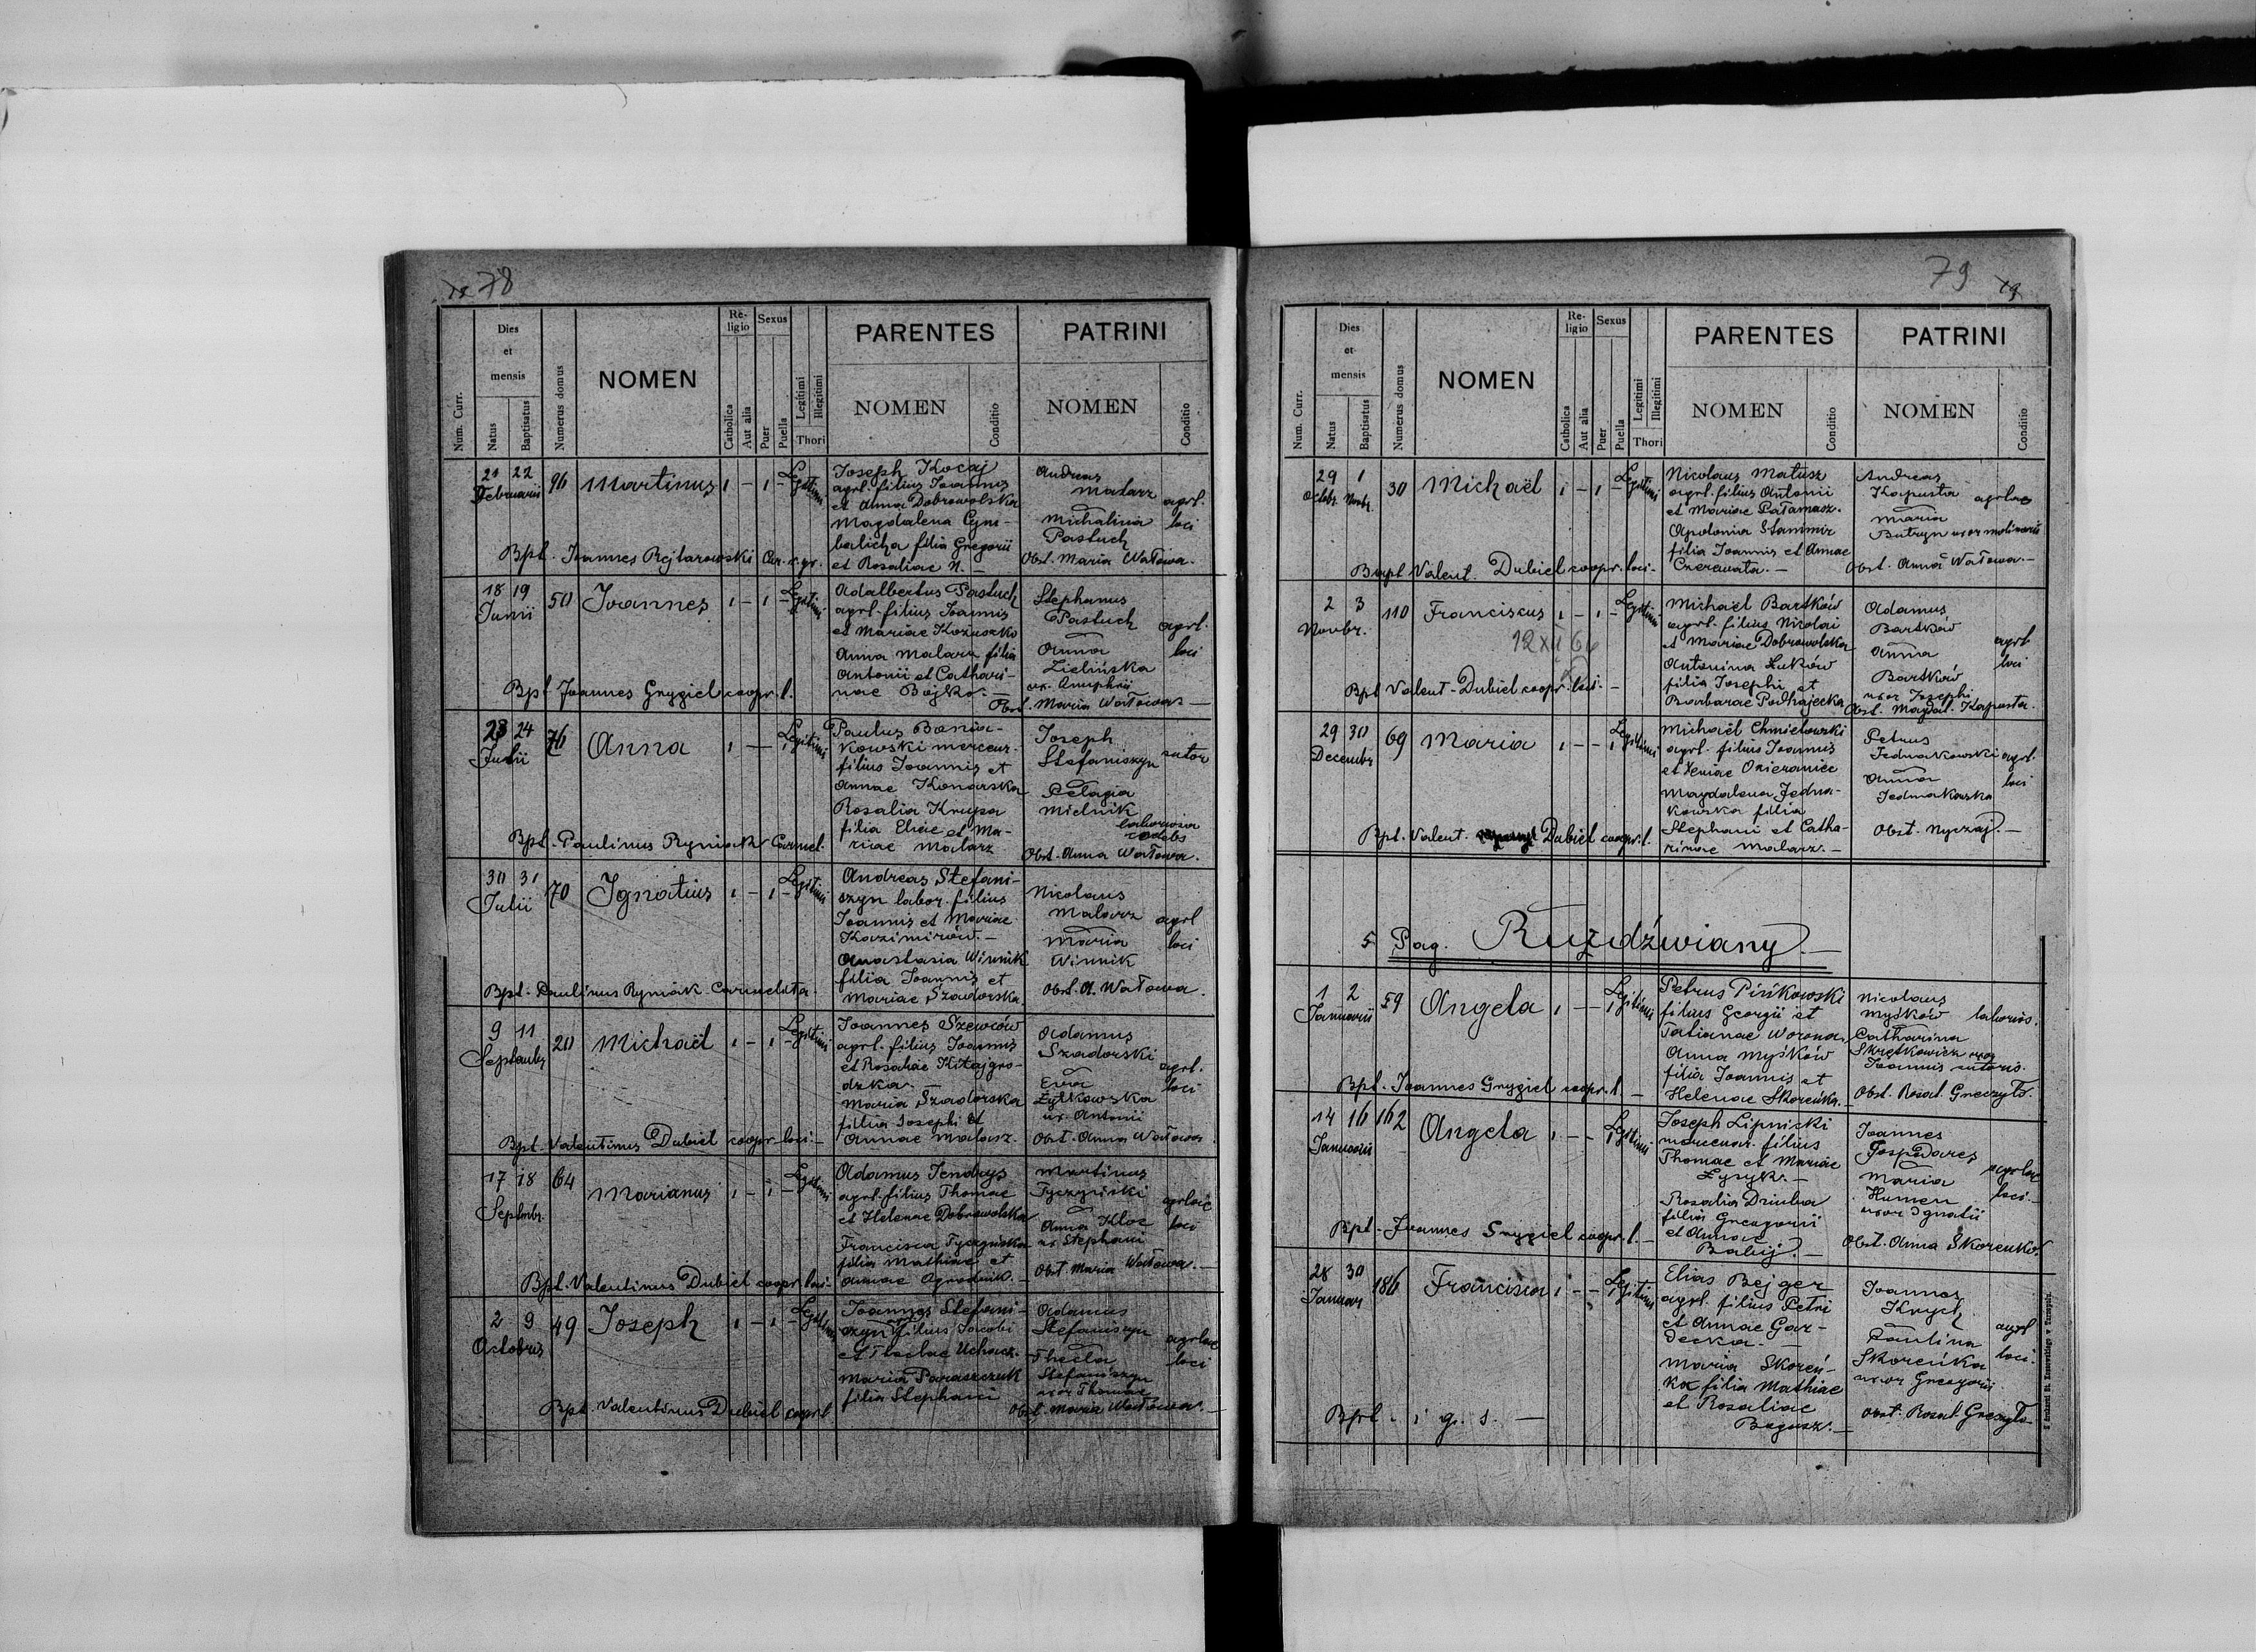 78
Num. Curr.
Dies et mensis
Natus
Baptisatus
Numerus domus
NOMEN
Religio
Catholica
Aut alia
Sexus
Puer
Puella
Legitimi
Illegitimi
Thori
PARENTES
NOMEN
Conditio
PATRINI
NOMEN
Conditio
21 22
Februarii
96
Martinus
1 - 1 -
Legitimi
Joseph Kocaj
agrl. filius Joannis
et Anna Dobrowolska
Magdalena Cym-
balicha filia Gregorii
et Rosaliae N. -
Andreas
Malarz
Michalina
Pastuch
agrl.
loci
Obst. Maria Watowa.
Bpt. Joannes Rejtarowski Cur. r. gr.
18 19
Junii
50
Joannes
1 - 1 -
Legitimi
Adalbertus Pastuch
agrl. filius Joannis
et Mariae Kożuszko
Anna Malarz filia
Antonii et Cathari-
nae Bojko. -
Stephanus
Pastuch
Anna
Zielińska
ux. Onuphrii
agrl.
loci
Obst. Maria Watowa -
Bpt. Joannes Grygiel coopr. l.
23 24
Julii
76
Anna
1 - - 1
Legitimi
Paulus Bania-
kowski mercen.
filius Joannis et
Annae Konarska
Rosalia Krupa
filia Eliae et Ma-
riae Malarz
Joseph
Stefaniszyn
sutor
Pelagia
Mielnik
laboriosa
caelebs
Obst. Anna Watowa.
Bpt. Paulinus Ryniak Carmel.
30 31
Julii
70
Ignatius
1 - 1 -
Legitimi
Andreas Stefani-
szyn labor. filius
Joannis et Mariae
Kazimirów. -
Anastasia Winnik
filia Joannis et
Mariae Szadorska.
Nicolaus
Malarz
Maria
Winnik
agrl
loci
Obst. A. Watowa.
Bpt. Paulinus Ryniak Carmelita.
9 11
Septembr
20
Michaël
1 - 1 -
Legitimi
Joannes Szewców
agrl. filius Joannis
et Rosaliae Kitajgro-
dzka. -
Maria Szadorska
filia Josephi et
Annae Malarz.
Adamus
Szadorski
Ewa
Żytkowska
ux. Antonii
agrl.
loci
Obst. Anna Watowa
Bpt. Valentinus Dubiel coopr. loci. -
17 18
Septmbr.
64
Marianus
1 - 1 -
Legitimi
Adamus Jendrys
agrl. filius Thomae
et Helenae Dobrowolska
Francisca Tyczyńska
filia Mathiae et
Annae Ogrodnik. -
Martinus
Tyczyński
Anna Kloc
ux. Stephani
agrlae
loci
Obst. Maria Watowa. -
Bpt. Valentinus Dubiel coopr. loci-
2 9
Octobris
49
Joseph
1 - 1 -
Legitimi
Joannes Stefani-
szyn filius Jacobi
et Theclae Uchacz.
Maria Paraszczuk
filia Stephani
Adamus
Stefaniszyn
Thecla
Stefaniszyn
uxor Thomae
agrlae
loci
Obst. Maria Watowa. -
Bpt. Valentinus Dubiel coopr. l
79
Num. Curr.
Dies et mensis
Natus
Baptisatus
Numerus domus
NOMEN
Religio
Catholica
Aut alia
Sexus
Puer
Puella
Legitimi
Illegitimi
Thori
PARENTES
NOMEN
Conditio
PATRINI
NOMEN
Conditio
29 1
Octobr. Novbr.
30
Michaël
1 - 1 -
Legitimi
Nicolaus Matusz
agrl. filius Antonii
et Mariae Pałamasz.
Apolonia Stanimir
filia Joannis et Annae
Czerewata. -
Andreas
Kapusta
agrlae
Maria
Butryn uxor molinarii
Obst. Anna Watowa. -
Bapt Valent. Dubiel coopr. loci-
2 3
Novbr.
110
Franciscus
1 - 1 -
Legitimi
Michaël Bartków
agrl. filius Nicolai
et Mariae Dobrowolska
Antonina Łuków
filia Josephi et
Barbarae Podhajecka
Adamus
Bartków
Anna
Bartków
uxor Josephi
agrl
loci
Obst. Magdal. Kapusta.
Bpt Valent. Dubiel coopr. loci. -
29 30
Decembr
69
Maria
1 - - 1
Legitimi
Michaël Chmielowski
agrl. filius Joannis
et Xeniae Ozieraniec
Magdalena Jedna-
kowska filia
Stephani et Catha-
rinae Malarz. -
Petrus
Jednakowski
agrl.
Anna
Jednakowska
loci
Obst. Nyczaj. -
Bpt. Valent. Dubiel coopr. l.
5 Pag. Ruzdźwiany. -
1 2
Januarii
59
Angela
1 - - 1
Legitimi
Petrus Pińkowski
filius Georgii et
Tatianae Worona.
Anna Myśków
filia Joannis et
Helenae Skoreńka.
Nicolaus
Myśków
laborios.
Catharina
Skrętkowicz uxor
Joannis sutoris.
Obst. Rosal. Greczyło.
Bpt. Joannes Grygiel coopr. l. -
14 16
Januarii
162
Angela
1 - - 1
Legitimi
Joseph Lipnicki
mercenar. filius
Thomae et Mariae
Łysyk. -
Rosalia Dziuba
filia Gregorii
et Annae
Babij. -
Joannes
Gospodarec
Maria
Humen
uxor Ignatii
agrlae
loci. -
Obst. Anna Skorenko.
Bpt. Joannes Grygiel coopr. l. -
28 30
Januar
186
Francisca
1 - - 1
Legitimi
Elias Bejger
agrl. filius Petri
et Annae Gar-
decka. -
Maria Skoreń-
ka filia Mathiae
et Rosaliae
Bogusz. -
Joannes
Krych
Paulina
Skoreńka
uxor Gregorii
agrl
loci.
Obst. Rosal. Greczyło
Bpt. i g. s. -